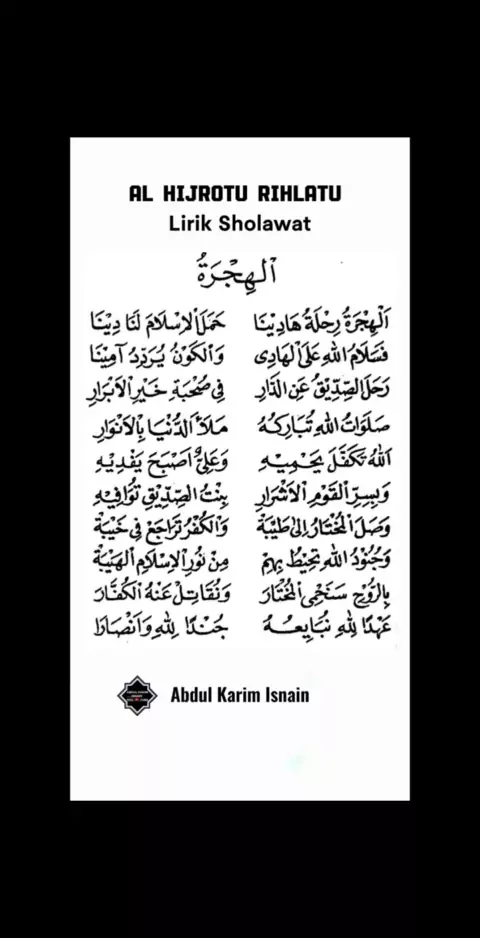 AL HIJROTU RIHLATU
Lirik Sholawat
اَلْهِجْرَةُ
اَلْهِجْرَةُ رِحْلَةُ هَادِيْنَا حَمَلَ الْاِسْلَامَ لَنَا دِيْنَا
فَسَلَامُ اللهِ عَلَى الْهَادِى وَالْكَوْنُ يُرَدِّدُ آمِيْنَا
رَحَلَ الصِّدِّيْقُ عَنِ الدَّارِ فِى صُحْبَةِ خَيْرِ الْاَبْرَارِ
صَلَوَاتُ اللهِ تُبَارِكُهُ مَلَأَ الدُّنْيَا بِالْاَنْوَارِ
اَللهُ تَكَفَّلَ يَحْمِيْهِ وَعَلِيٌّ اَصْبَحَ يَفْدِيْهِ
وَبِسِرِّ الْقَوْمِ الْاَشْرَارِ بِنْتُ الصِّدِّيْقِ تُوَافِيْهِ
وَصَلَ الْمُخْتَارُ اِلٰى طَيْبَةْ وَالْكُفْرُ تَرَاجَعَ فِى خَيْبَةْ
وَجُنُوْدُ اللهِ تُحِيْطُ بِهِمْ مِنْ نُوْرِ الْاِسْلَامِ الْهَيْبَةْ
بِالرُّوْحِ سَنَحْمِى الْمُخْتَارَ وَنُقَاتِلُ عَنْهُ الْكُفَّارَ
عَهْدًا لِلّٰهِ نُبَايِعُهُ جُنْدًا لِلّٰهِ وَاَنْصَارَا
Abdul Karim Isnain